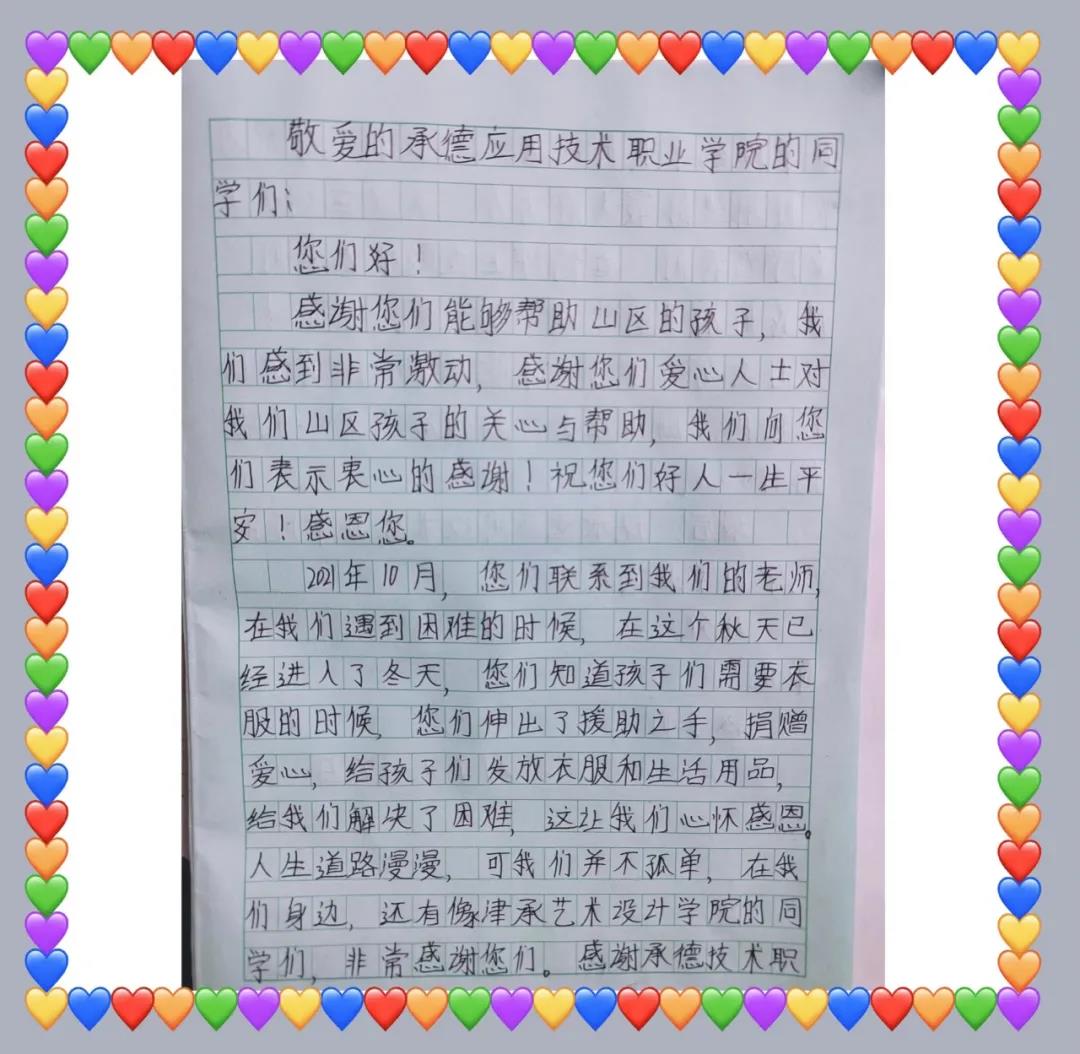 敬爱的承德应用技术职业学院的同
学们：
您们好！
感谢您们能够帮助山区的孩子，我
们感到非常激动，感谢您们爱心人士对
我们山区孩子的关心与帮助，我们向您
们表示衷心的感谢！祝您们好人一生平
安！感恩您。
2021年10月，您们联系到我们的老师，
在我们遇到困难的时候，在这个秋天已
经进入了冬天，您们知道孩子们需要衣
服的时候，您们伸出了援助之手，捐赠
爱心，给孩子们发放衣服和生活用品，
给我们解决了困难，这让我们心怀感恩。
人生道路漫漫，可我们并不孤单，在我
们身边，还有像津承艺术设计学院的同
学们，非常感谢您们。感谢承德技术职